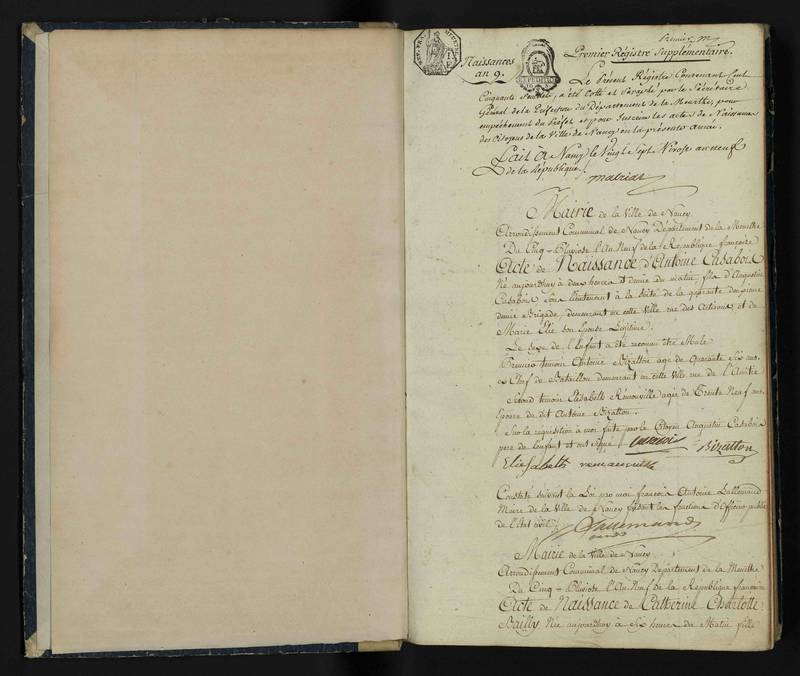 Premier m
Naissances
an 9.
Premier Régistre Supplémentaire.
Le Présent Régistre Contenant Cent
Cinquante feuillets, a été Cotté et Paraphé par le Sécrétaire
Général de la Préfecture du Département de la Meurthe, pour
empêchement du Préfet et pour Inscrire les actes de Naissances
des Citoyens de la Ville de Nancy en la présente année.
Fait à Nancy le Vingt Sept Nivose an neuf
de la République.
Mairie de la Ville de Nancy
Arrondissement Communal de Nancy Département de la Meurthe
Du Cinq Pluviose l'An Neuf de la République française
Acte de Naissance d'Antoine Casabois
Né aujourdhuy à deux heures et demie du matin, fils d'Augustin
Casabois Sous lieutenant à la Suite de la quarante deuxieme
demie Brigade, demeurant en cette Ville rue des Artisans, et de
Marie Elie Son Epouse Légitime.
Le Sexe de l'Enfant a été reconnu être Male
Premier temoin Antoine Bizatton agé de quarante Six ans.
Chef de Bataillon demeurant en cette Ville rue de l'Amitié
Second temoin Elisabeth Remonville agée de Trente Neuf ans.
Epouse du dit Antoine Bizatton.
Sur la réquisition à moi faite par le Citoyen Augustin Casabois
pere de l'enfant et ont Signé
Bizatton
Elisabeth
Constaté Suivant la Loi par moi françois Antoine Lallemand
Maire de la Ville de Nancy faisant les fonctions d'Officier public
de l'Etat civil.
Lallemand
Mairie de la Ville de Nancy
Arrondissement Communal de Nancy Departement de la Meurthe
Du Cinq Pluviose l'An Neuf de la République française
Acte de Naissance de Catherine Charlotte
Bailly Née aujourdhuy à Six heures du Matin fille